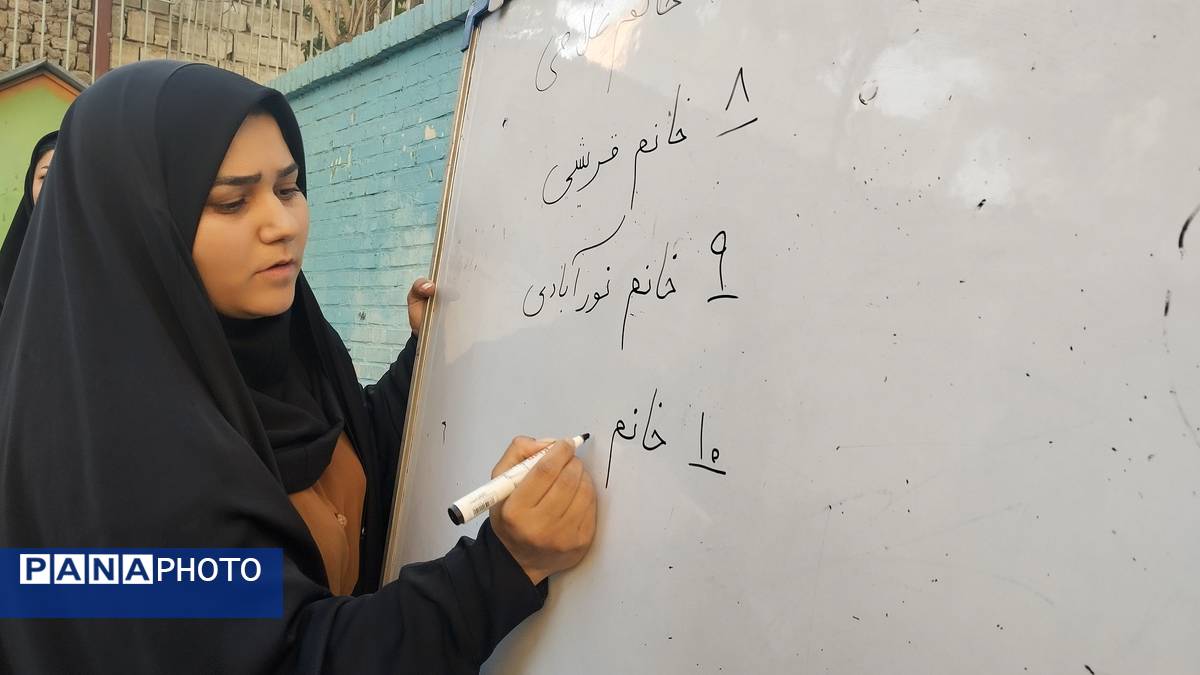 خانم غلامی
۸ خانم قریشی
۹ خانم نورآبادی
۱۰ خانم
PANAPHOTO